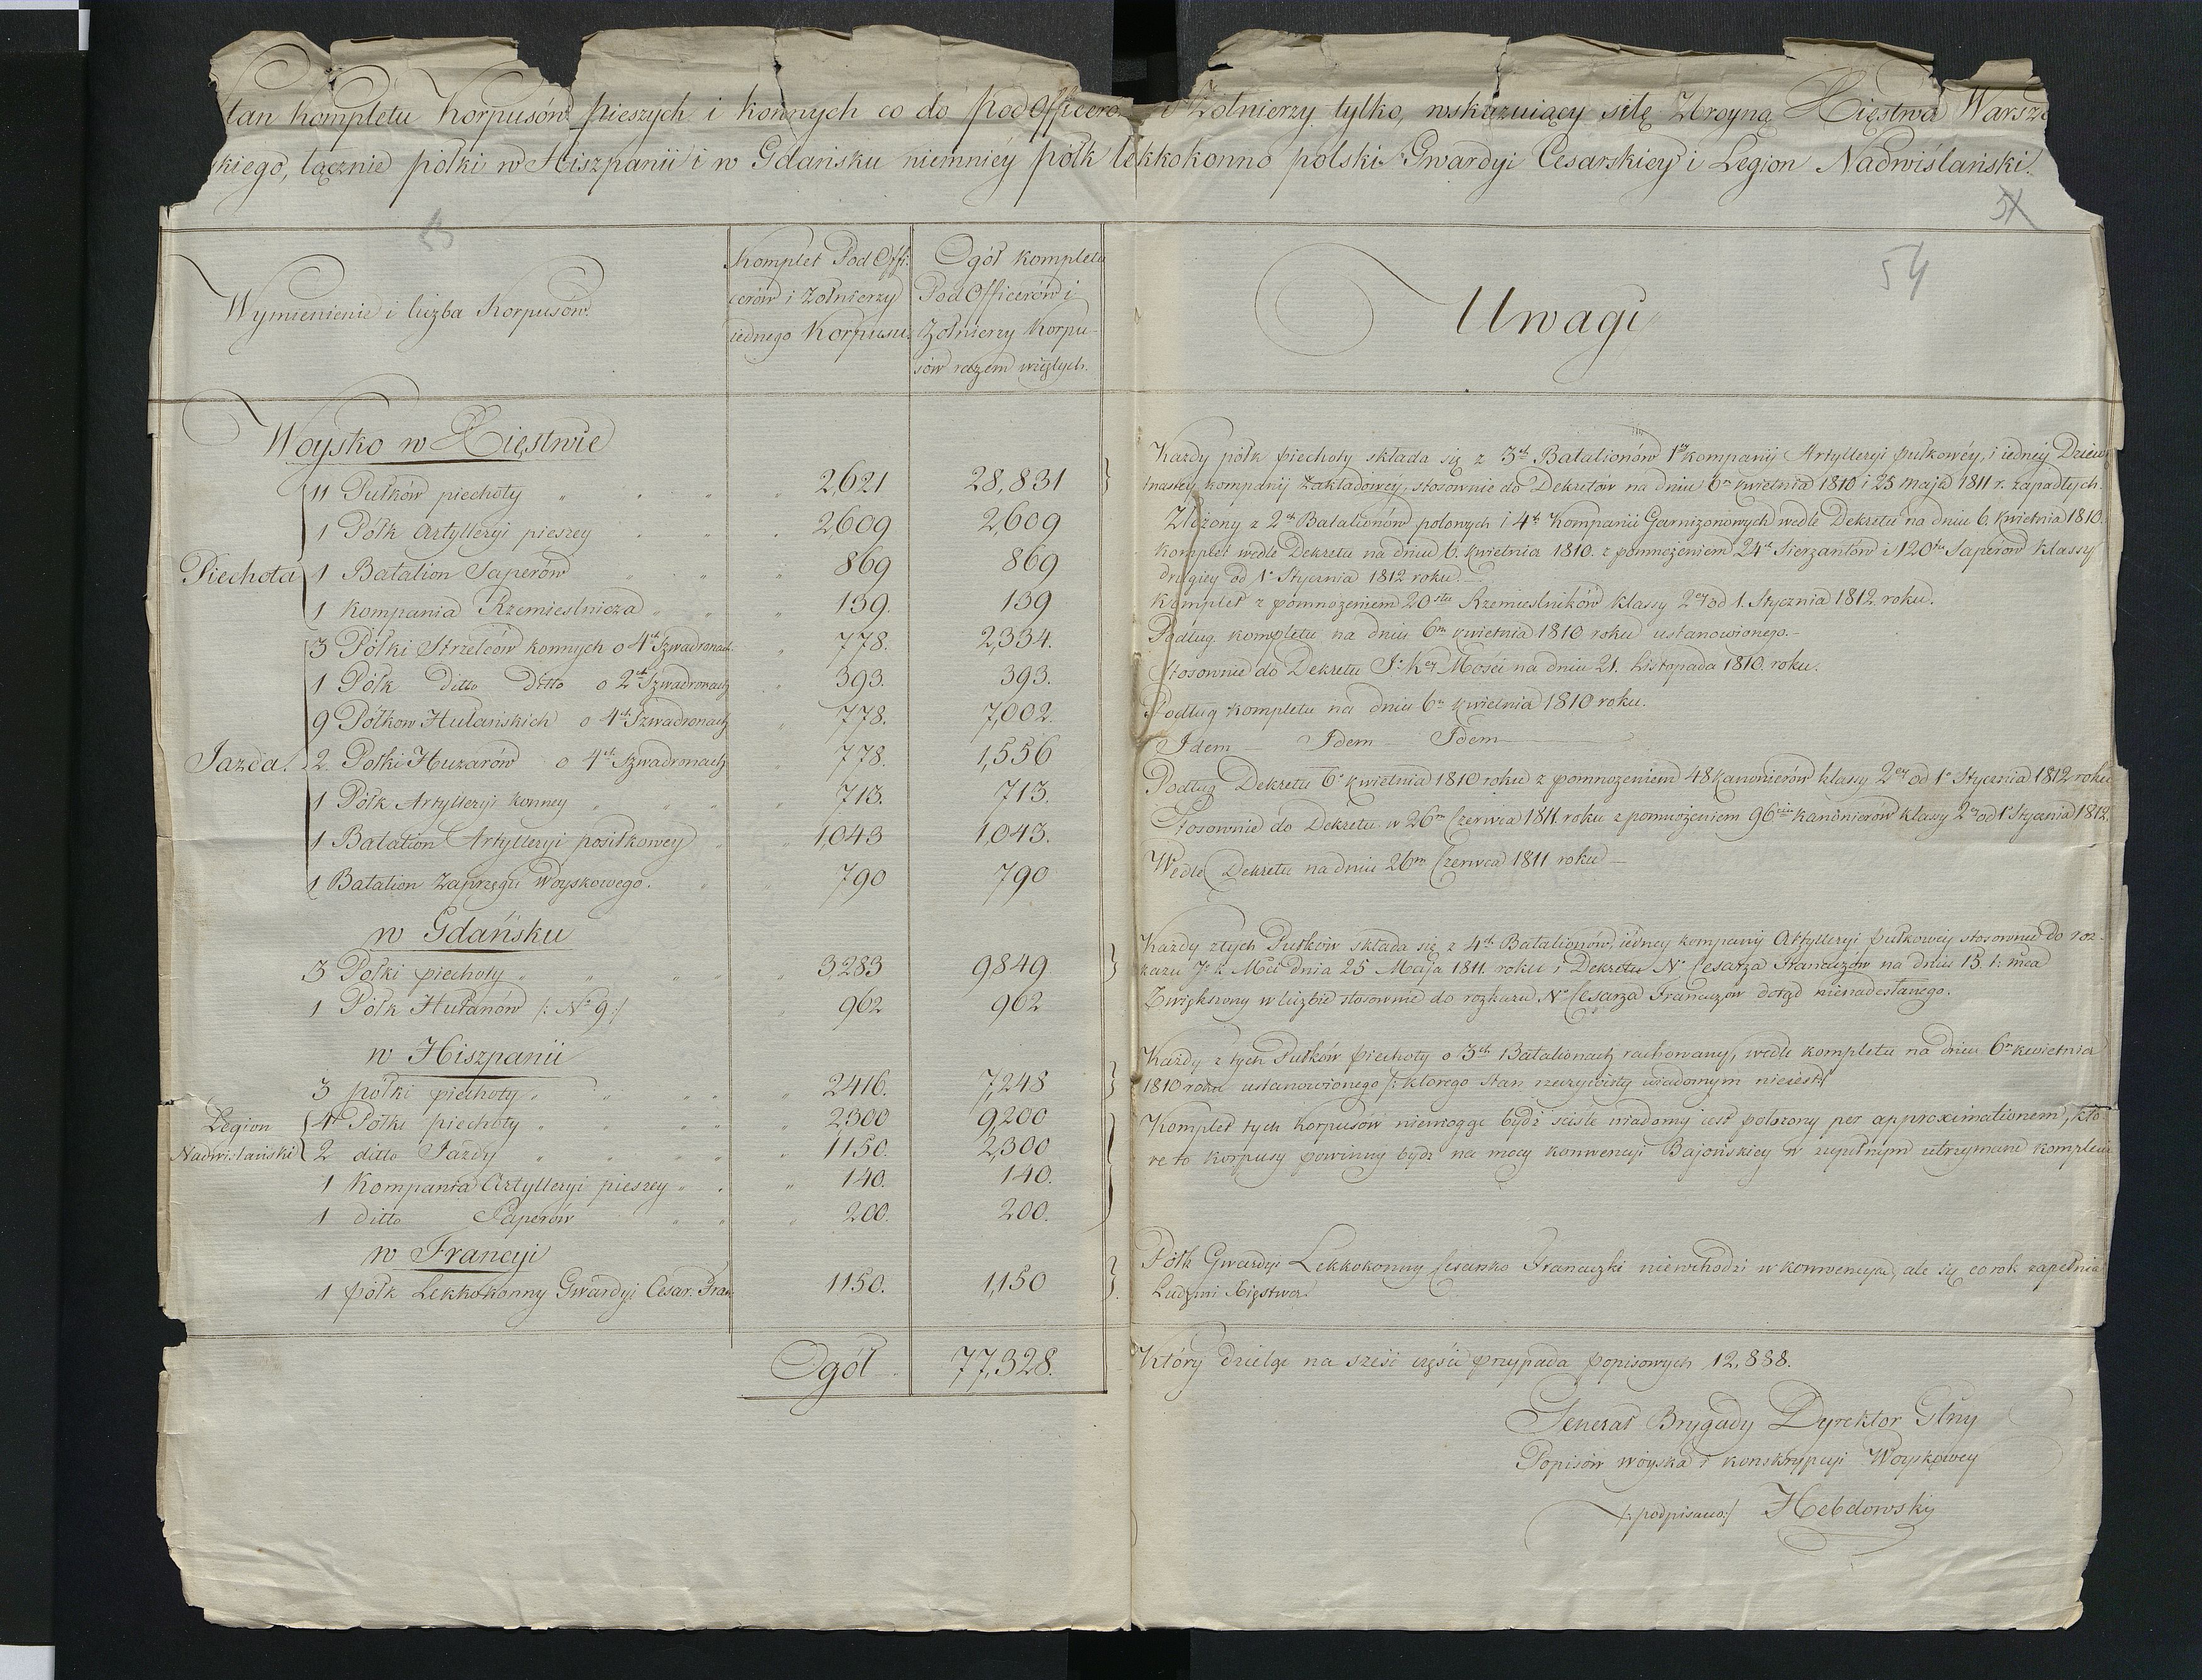 tan Kompletu Korpusów pieszych i konnych co do Pod Officero i Żołnierzy tylko, wskazuiący siłę Zbroyną Xięstwa Warsza
kiego, łącznie półki w Hiszpanii i w Gdańsku niemniéy półk lekkokonno polski Gwardyi Cesarskiey i Legion Nadwiślański.
53
51
54
Wymienienie i liczba Korpusów.
Komplet Pod Offi-
cerów i Żołnierzy
iednego Korpusu.
Ogół kompletu
Pod Officerów i
Żołnierzy Korpu-
sów razem wziętych.
Uwagi
Woysko w Xięstwie
Piechota
11 Pułków piechoty 2,621 28,831
1 Półk Artylleryi pieszey 2,609 2,609
1 Batalion Saperów 869 869
1 Kompania Rzemieslnicza 139. 139
Jazda.
3 Półki Strzelców konnych o 4ch Szwadronach 778. 2,334.
1 Półk Ditto Ditto o 2ch Szwadronach 393. 393.
9 Półkow Hułańskich o 4ch Szwadronach 778. 7,002.
2 Półki Huzarów o 4ch Szwadronach 778. 1,556
1 Półk Artylleryi Konney 713. 713.
1 Batalion Artylleryi posiłkowey 1,043 1,043.
1 Batalion Zaprzęgu Woyskowego. 790 790
w Gdańsku
3 Półki piechoty 3283 9849
1 Półk Hułanów /: No 9:/ 962 962
w Hiszpanii
3 półki piechoty 2416. 7,248
Legion
Nadwislański
4 Półki piechoty 2,300 9,200
2 ditto Jazdy 1150. 2,300
1 Kompania Artylleryi pieszey 140. 140.
1 ditto Saperów 200. 200.
w Francyi
1 półk Lekkokonny Gwardyi Cesar. Fran. 1150. 1,150
Ogół 77,328.
Każdy półk piechoty składa się z 3ch Batalionów 1ey kompanij Artylleryi pułkowéy, i iednéy Dziew
nastey kompanij Zakładowey, stosownie do Dekretów na dniu 6m kwietnia 1810 i 25 maja 1811 r. zapadłych.
Złożony z 2ch Batalionów polowych i 4ch Kompanii Garnizonowych wedle Dekretu na dniu 6. kwietnia 1810.
Komplet wedle Dekretu na dniu 6. kwietnia 1810. z pomnożeniem 24ch Sierzantów i 120tu Saperów klassy
drugiey od 1o Stycznia 1812 roku.
Komplet z pomnożeniem 20stu Rzemieslników klassy 2ey od 1. Stycznia 1812. roku.
Podług kompletu na dniu 6m kwietnia 1810 roku ustanowionego.
Stosownie do Dekretu J: Key Mości na dniu 21. Listopada 1810. roku.
Podług kompletu na dniu 6m kwietnia 1810 roku.
Idem Idem Idem
Podług Dekretu 6o kwietnia 1810 roku z pomnożeniem 48 kanonierów klassy 2ey od 1o Stycznia 1812 roku
Stosownie do Dekretu w 26m Czerwca 1811. roku z pomnożeniem 96ciu kanonierów klassy 2ey od 1o Stycznia 1812.
Wedle Dekretu na dniu 26m Czerwca 1811 roku
Każdy z tych Pułków składa się z 4ch Batalionów, iedney kompanij Artylleryi pułkowéy stosownie do roz-
kazu J: K Mci dnia 25 Maja 1811. roku i Dekretu No Cesarza Francuzów na dniu 15. t: mca
Zwiększony w liczbie stosownie do rozkazu No Cesarza Francuzów dotąd nienadesłanego.
Każdy z tych Pułków piechoty o 3ch Batalionach rachowany, wedle kompletu na dniu 6m kwietnia
1810 roku ustanowionego /: ktorego stan rzeczywisty wiadomym nieiest:/
Komplet tych Korpusów niemogąc bydź ściśle wiadomy iest położony per approximationem, któ-
re to korpusy powinny bydź na mocy konwencyi Bajońskiey w zupełnym utrzymane komplecie
Półk Gwardyi Lekkokonny Cesarsko Francuzki niewchodzi w konwencyą, ale się co rok zapełnia
Ludźmi Xięstwa.
Który dzieląc na sześć części przypada popisowych 12,888.
Generał Brygady Dyrektor Glny
Popisów woyska i konskrypcyi Woyskowey
/: podpisano:/ Hebdowsky